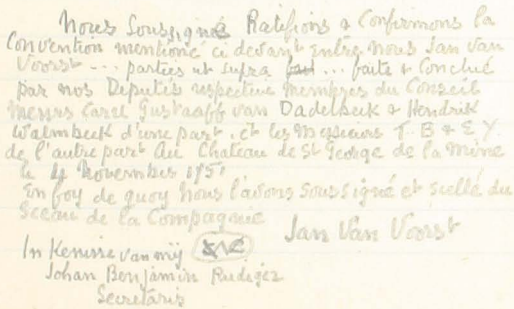 Nous Soussigné Ratifions & Confirmons la
Convention mentioné ci devant Entre Nous Jan van
Voorst --- parties ut supra ... faite & Conclué
par nos Deputés respective Membres du Conseil
Messrs Carel Gustaaff van Dadelbeek & Hendrik
Walmbeek d'une part. et les Messieurs T. B & E. Y
de l'autre part Au Chateau de St George de la Mine
le 4 Novembre 1751
En foy de quoy Nous l'avons Soussigné et Scellé du
Sceau de la Compagnie
Jan Van Voorst
In Kennisse van mij
Johan Benjamin Rudiger
Secretaris